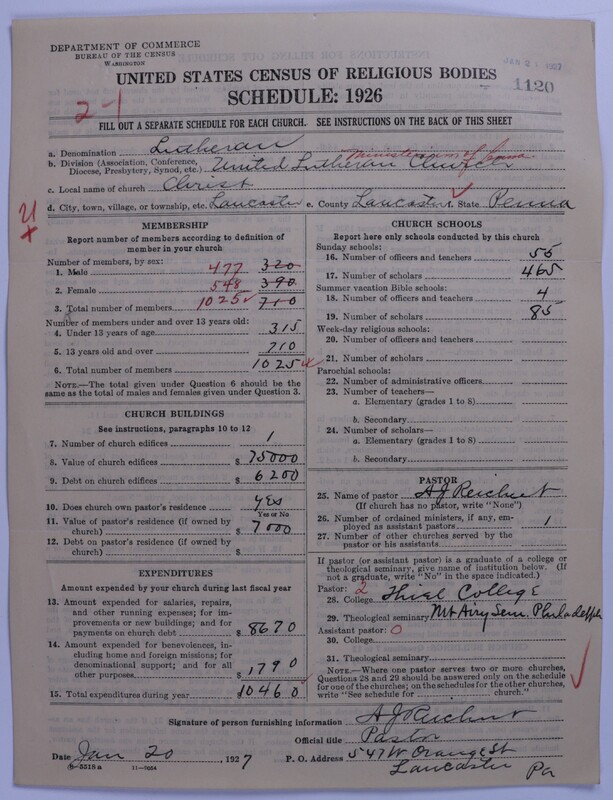 DEPARTMENT OF COMMERCE
BUREAU OF THE CENSUS
WASHINGTON
JAN 21 1927
1120
UNITED STATES CENSUS OF RELIGIOUS BODIES
SCHEDULE: 1926
2-1
FILL OUT A SEPARATE SCHEDULE FOR EACH CHURCH. SEE INSTRUCTIONS ON THE BACK OF THIS SHEET
a. Denomination Lutheran
Ministerium of Penna
b. Division (Association, Conference, Diocese, Presbytery, Synod, etc.) United Lutheran Church
c. Local name of church Christ
d. City, town, village, or township, etc. Lancaster e. County Lancaster f. State Penna
MEMBERSHIP
Report number of members according to definition of
member in your church
Number of members, by sex:
1. Male 477 320
2. Female 548 390
3. Total number of members 1025 710
Number of members under and over 13 years old:
4. Under 13 years of age 315
5. 13 years old and over 710
6. Total number of members 1025
NOTE.—The total given under Question 6 should be the
same as the total of males and females given under Question 3.
CHURCH BUILDINGS
See instructions, paragraphs 10 to 12
7. Number of church edifices 1
8. Value of church edifices $ 75000
9. Debt on church edifices $ 6200
10. Does church own pastor's residence yes
Yes or No
11. Value of pastor's residence (if owned by
church) $ 7000
12. Debt on pastor's residence (if owned by
church) $
EXPENDITURES
Amount expended by your church during last fiscal year
13. Amount expended for salaries, repairs,
and other running expenses; for im-
provements or new buildings; and for
payments on church debt $ 8670
14. Amount expended for benevolences,
including home and foreign missions; for
denominational support; and for all
other purposes $ 1790
15. Total expenditures during year $ 10460
CHURCH SCHOOLS
Report here only schools conducted by this church
Sunday schools:
16. Number of officers and teachers 55
17. Number of scholars 465
Summer vacation Bible schools:
18. Number of officers and teachers 4
19. Number of scholars 85
Week-day religious schools:
20. Number of officers and teachers
21. Number of scholars
Parochial schools:
22. Number of administrative officers
23. Number of teachers—
a. Elementary (grades 1 to 8)
b. Secondary
24. Number of scholars—
a. Elementary (grades 1 to 8)
b. Secondary
PASTOR
25. Name of pastor A J Reichert
(If church has no pastor, write "None")
26. Number of ordained ministers, if any, em-
ployed as assistant pastors 1
27. Number of other churches served by the
pastor or his assistants
If pastor (or assistant pastor) is a graduate of a college or
theological seminary, give name of institution below. (If
not a graduate, write "No" in the space indicated.)
Pastor: 2
28. College Thiel College
29. Theological seminary Mt Airy Sem. Philadelphia
Assistant pastor: 0
30. College
31. Theological seminary
NOTE.—Where one pastor serves two or more churches,
Questions 28 and 29 should be answered only on the schedule
for one of the churches; on the schedules for the other churches,
write "See schedule for church."
Signature of person furnishing information A J Reichert
Official title Pastor
Date Jan 20, 1927 P. O. Address 547 W Orange St
Lancaster Pa
8-5518a 11—9854